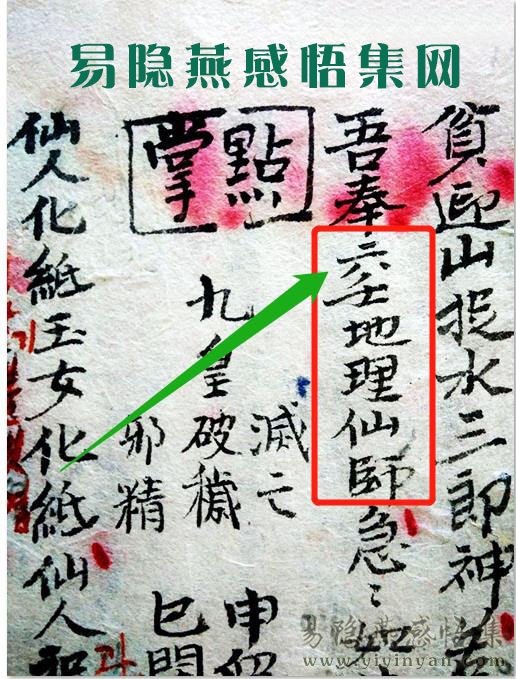 易隐燕感悟集网
貧迎山捉水三郎神
吾奉六壬地理仙師急〻如
點
掌
滅亡
九皇破穢
邪精
申
巳
仙人化紙玉女化紙仙人和
易隐燕感悟集
www.yiyinyan.com